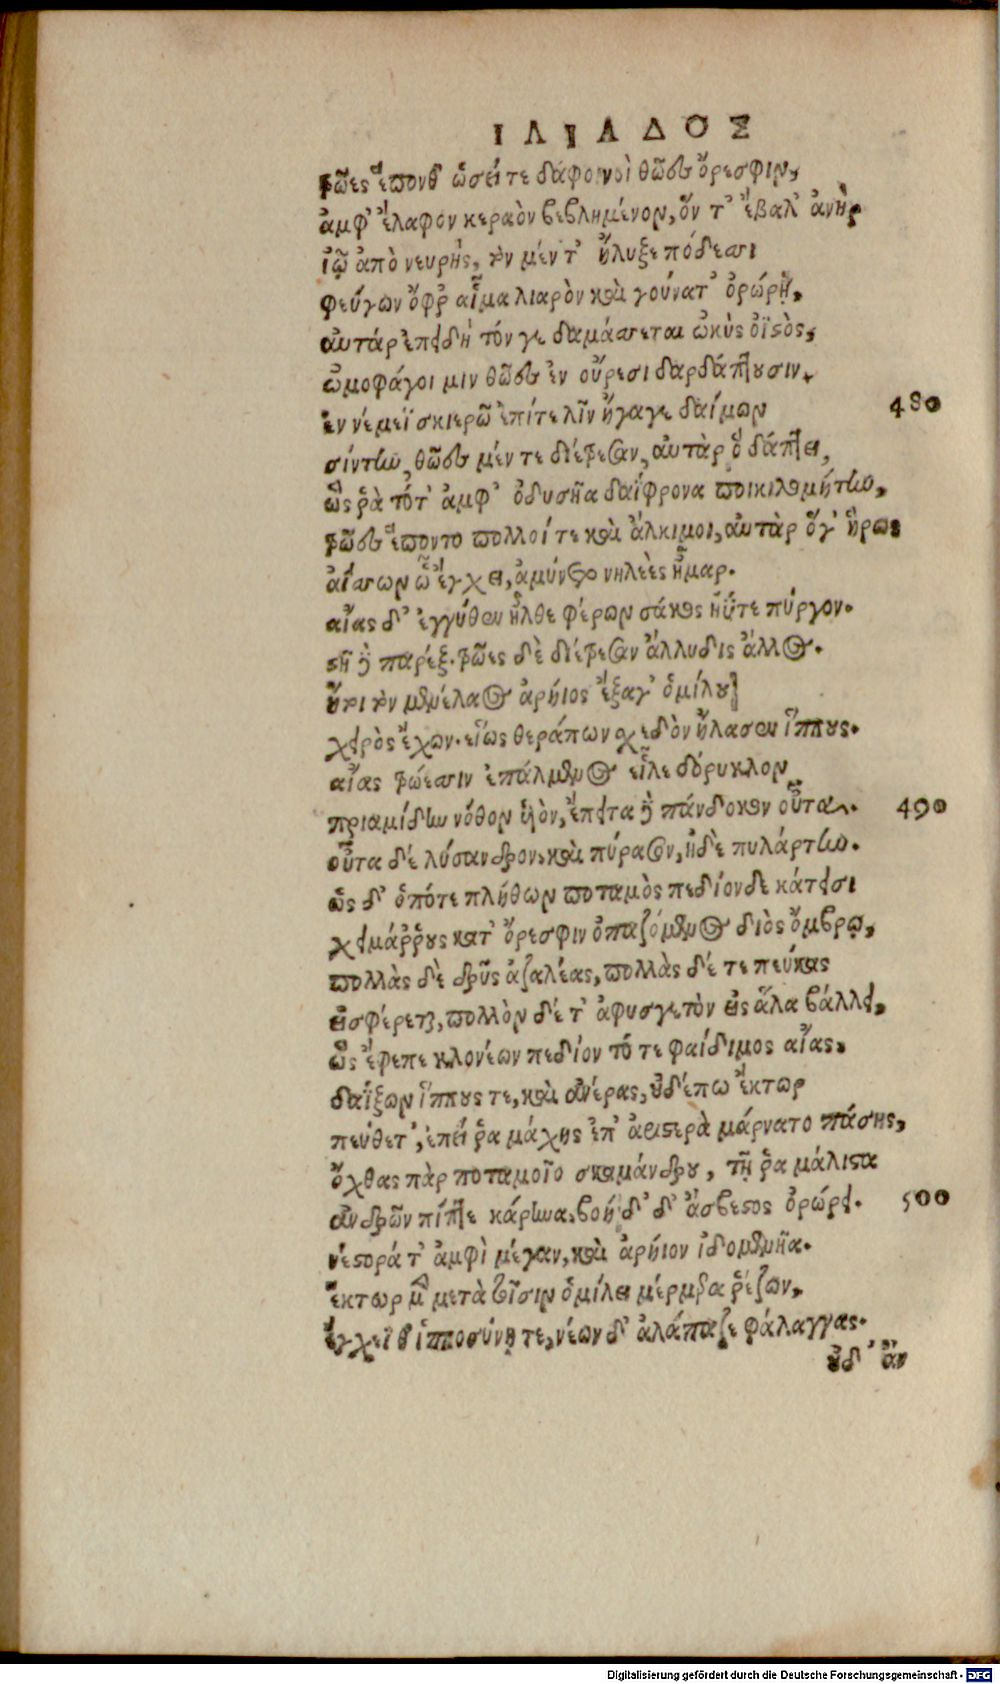 ΙΛΙΑΔΟΣ
τρῶες ἕπονθ' ὡσεί τε δάφοινοὶ θῶες ὄρεσφιν,
ἀμφ' ἔλαφον κεραὸν βεβλημένον, ὅν τ' ἔβαλ' ἀνὴρ
ἰῷ ἀπὸ νευρῆς, τὸν μέν τ' ἤλυξε πόδεσσι
φεύγων ὄφρ' αἷμα λιαρὸν καὶ γούνατ' ὀρώρῃ,
αὐτὰρ ἐπειδὴ τόν γε δαμάσσεται ὠκὺς ὀϊστὸς,
ὠμοφάγοι μιν θῶες ἐν οὔρεσι δαρδάπτουσιν,
ἐν νέμεϊ σκιερῶ ἐπί τε λῖν ἤγαγε δαίμων 480
σίντην, θῶες μέν τε διέτρεσαν, αὐτὰρ ὁ δάπτει,
ὥς ῥὰ τότ' ἀμφ' ὀδυσῆα δαΐφρονα ποικιλομήτην,
τρῶες ἕποντο πολλοί τε καὶ ἄλκιμοι, αὐτὰρ ὅγ' ἥρως
ἀΐσσων ᾧ ἔγχει, ἀμύνετο νηλεὲς ἦμαρ.
αἴας δ' ἐγγύθεν ἦλθε φέρων σάκος ἠΰτε πύργον.
στῆ δὲ παρέξ. τρῶες δὲ διέτρεσαν ἄλλυδις ἄλλος.
ἤτοι τὸν μενέλαος ἀρήϊος ἔξαγ' ὁμίλου
χειρὸς ἔχων. εἵως θεράπων σχεδὸν ἤλασεν ἵππους.
αἴας τρώεσσιν ἐπάλμενος εἷλε δόρυκλον
πριαμίδην νόθον υἱὸν, ἔπειτα δὲ πάνδοκον οὖτα. 490
οὖτα δὲ λύσανδρον, καὶ πύρασον, ἠδὲ πυλάρτην.
ὡς δ' ὁπότε πλήθων ποταμὸς πεδίονδε κάτεισι
χειμάρρους κατ' ὄρεσφιν ὀπαζόμενος διὸς ὄμβρῳ,
πολλὰς δὲ δρῦς ἀζαλέας, πολλὰς δέ τε πεύκας
εἰσφέρεται, πολλὸν δέ τ' ἀφυσγετὸν εἰς ἅλα βάλλει,
ὣς ἔφεπε κλονέων πεδίον τότε φαίδιμος αἴας,
δαΐξων ἵππους τε, καὶ ἀνέρας, οὐδέπω ἕκτωρ
πεύθετ', ἐπεί ῥα μάχης ἐπ' ἀριστερὰ μάρνατο πάσης,
ὄχθας πὰρ ποταμοῖο σκαμάνδρου, τῇ ῥα μάλιστα
ἀνδρῶν πίπτε κάρηνα, βοὴ δ' ἄσβεστος ὀρώρει. 500
νέστορά τ' ἀμφὶ μέγαν, καὶ ἀρήϊον ἰδομενῆα.
ἕκτωρ μὲν μετὰ τοῖσιν ὁμίλει μέρμερα ῥέζων,
ἔγχεΐ θ' ἱπποσύνῃ τε, νέων δ' ἀλάπαζε φάλαγγας.
οὐδ' ἂν
Digitalisierung gefördert durch die Deutsche Forschungsgemeinschaft - DFG